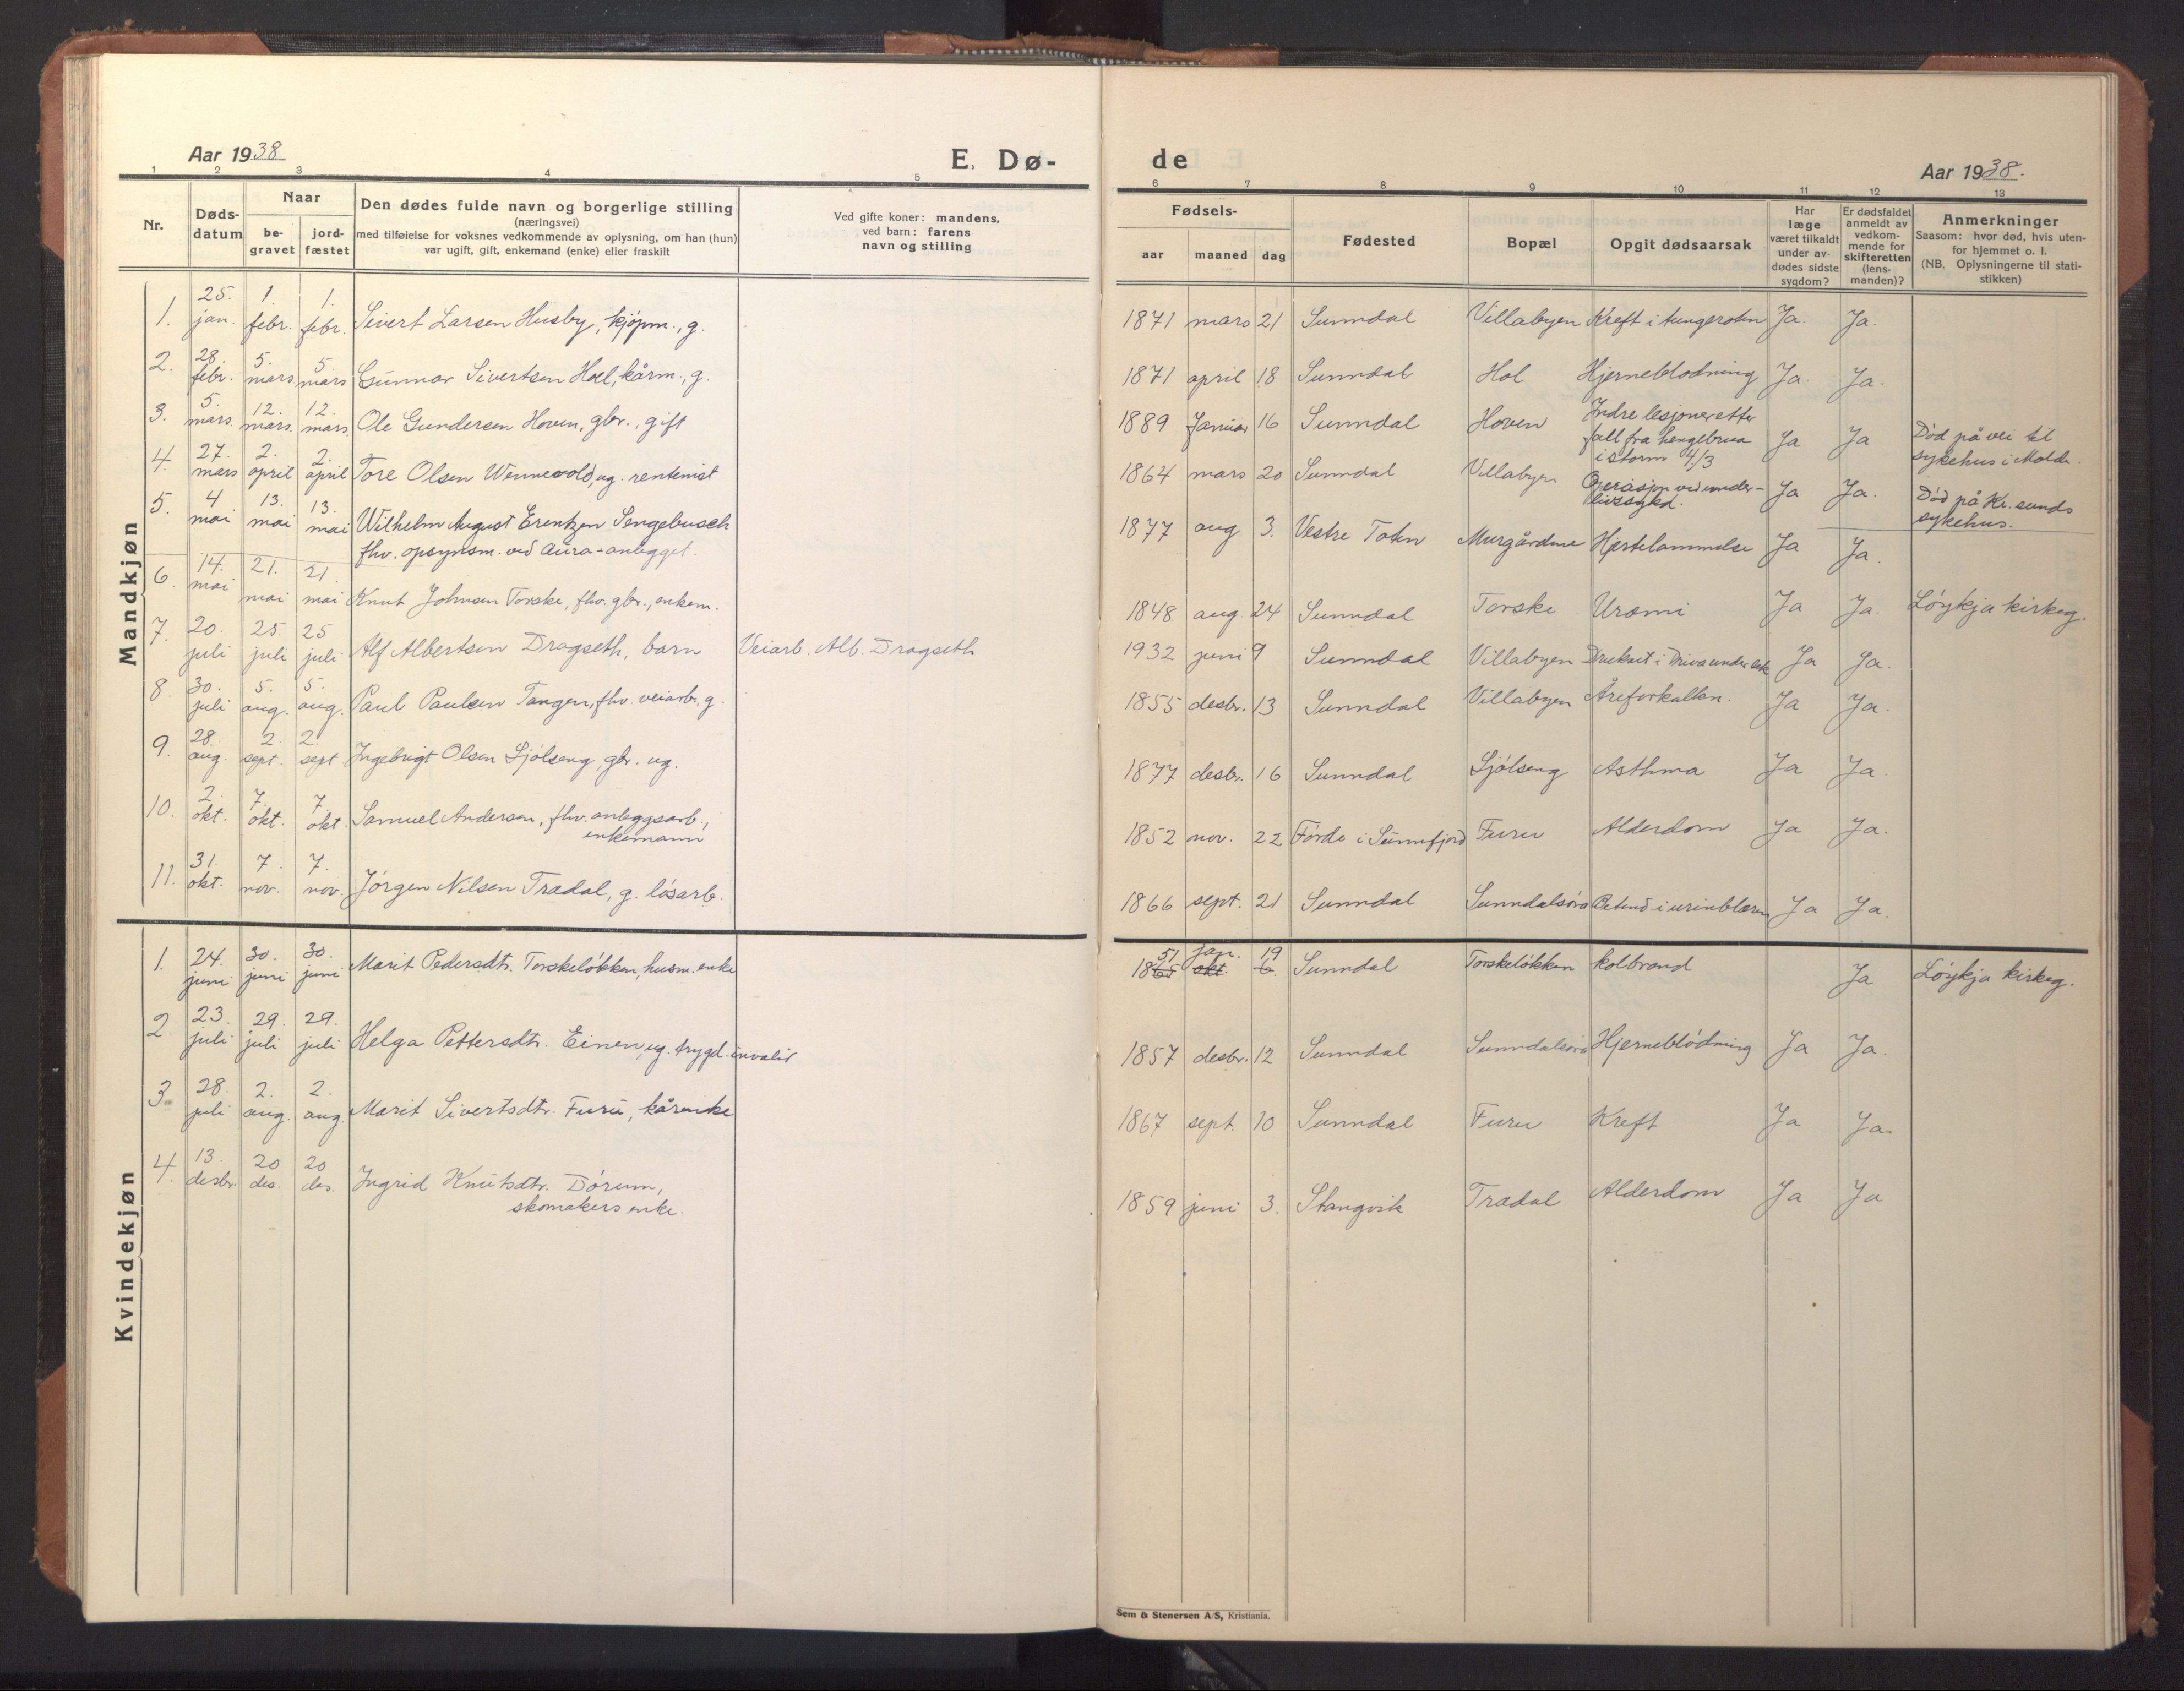 Aar 1938
E. Dø-
de
Aar 1938.
1 2 3 4 5
6 7 8 9 10 11 12 13
Nr.
Døds-
datum
Naar
be-
gravet
jord-
fæstet
Den dødes fulde navn og borgerlige stilling
(næringsvei)
med tilføielse for voksnes vedkommende av oplysning, om han (hun)
var ugift, gift, enkemand (enke) eller fraskilt
Ved gifte koner: mandens,
ved barn: farens
navn og stilling
Fødsels-
aar maaned dag
Fødested
Bopæl
Opgit dødsaarsak
Har
læge
været tilkaldt
under av-
dødes sidste
sygdom?
Er dødsfaldet
anmeldt av
vedkom-
mende for
skifteretten
(lens-
manden)?
Anmerkninger
Saasom: hvor død, hvis uten-
for hjemmet o. l.
(NB. Oplysningerne til stati-
stikken)
Mandkjøn
1. 25. jan. 1. febr. 1. febr. Sivert Larsen Husby, kjøpm., g. 1871 mars 21 Sunndal Villabyen Kreft i tungeroten Ja. Ja.
2. 28. febr. 5. mars 5 mars Gunnar Sivertsen Hoel, kårm., g. 1871 april 18 Sunndal Hol Hjerneblodning Ja. Ja.
3. 5. mars. 12. mars. 12. mars. Ole Gundersen Hoven, gbr., gift 1889 Januar 16 Sunndal Hoven Indre lesjoner etter
fall fra hengebrua
i storm 4/3 Ja Ja Død på vei til
sykehus i Molde.
4. 27. mars 2. april 2. april Tore Olsen Wennevold, ug. rentenist 1864 mars 20 Sunndal Villabyen Operasjon ved under-
livssykd. Ja Ja. Død på Kr.sunds
sykehus.
5. 4 mai 13. mai 13. mai Wilhelm August Erentzen Sengebusch
fhv. opsynsm. ved Aura-anlegget. 1877 aug 3. Vestre Toten Murgårdene Hjertelammelse Ja Ja.
6. 14. mai 21. mai 21. mai Knut Johnsen Torske, fhv. gbr., enkem. 1848 aug. 24 Sunndal Torske Uræmi Ja Ja. Løykja kirkeg.
7. 20. juli 25. juli 25 juli Alf Albertsen Dragseth, barn Veiarb. Alb. Dragseth 1932 juni 9 Sunndal Villabyen Druknet i Driva under lek Ja Ja.
8. 30. juli 5. aug. 5. aug. Paul Paulsen Tangen, fhv. veiarb., g. 1855 desbr. 13 Sunndal Villabyen Åreforkalkn. Ja Ja.
9. 28. aug. 2. sept. 2. sept Ingebrigt Olsen Sjølseng, gbr. ug. 1877 desbr. 16 Sunndal Sjølseng Asthma Ja Ja.
10. 2. okt. 7. okt. 7. okt. Samuel Andersen, fhv. anleggsarb.,
enkemann 1852 nov. 22 Førde i Sunnfjord Furu Alderdom Ja Ja.
11. 31. okt. 7. nov. 7. nov. Jørgen Nilsen Trædal, g. løsarb. 1866 sept. 21 Sunndal Sunndalsøra Betend i urinblæren Ja Ja.
Kvindekjøn
1. 24. juni 30. juni 30. juni Marit Pedersdtr. Torskeløkken, husm. enke 1865 51 okt jan. 6. 19 Sunndal Torskeløkken kolbrand Ja Løykja kirkeg.
2. 23. juli 29. juli 29. juli Helga Pettersdtr. Einen, ug. trygd. invalid 1857 desbr. 12 Sunndal Sunndalsøra Hjerneblødning Ja Ja.
3. 28. juli 2. aug. 2. aug. Marit Sivertsdtr. Furu, kårenke 1867 sept. 10 Sunndal Furu Kreft Ja Ja.
4. 13. desbr. 20 des. 20 des. Ingrid Knutsdtr. Dørum,
skomakers enke. 1859 juni 3. Stangvik Trædal Alderdom Ja Ja
Sem & Stenersen A/S, Kristiania.